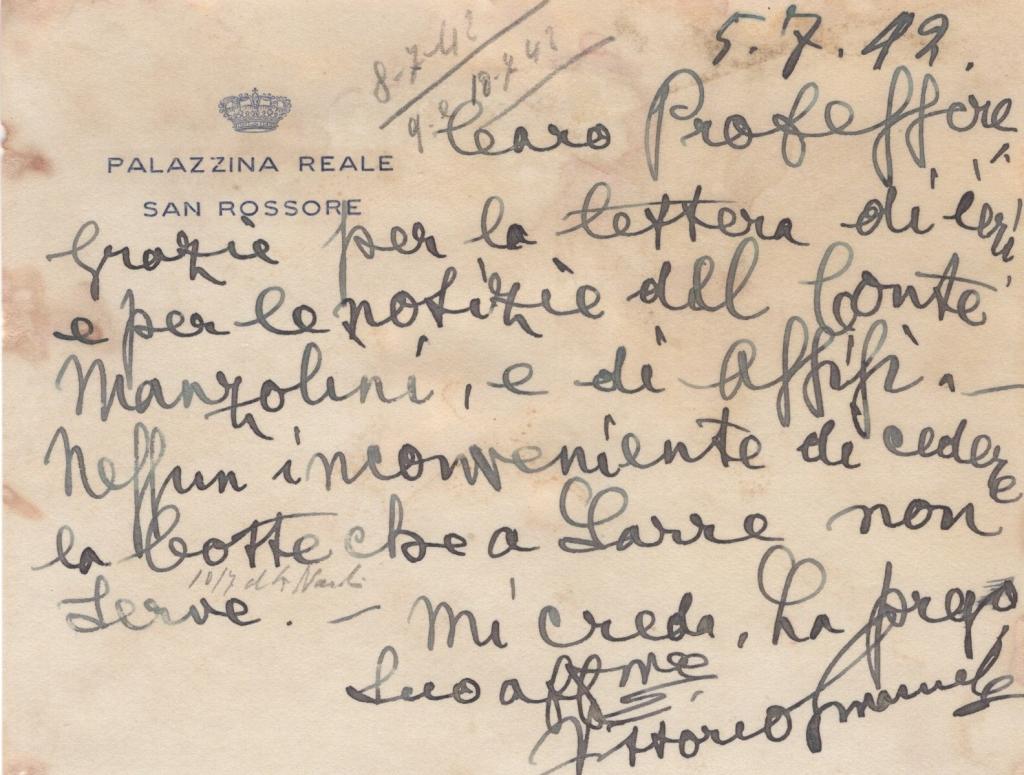 8-7-42
18-7-42
5.7.42.
Caro Professore
PALAZZINA REALE
SAN ROSSORE
Grazie per la lettera di ieri
e per le notizie del Conte
Manzolini, e di Assisi. —
Nessun inconveniente di cedere
la botte che a Sarre non
10/7
serve. — Mi creda, La prego,
Suo aff mo
Vittorio Emanuele